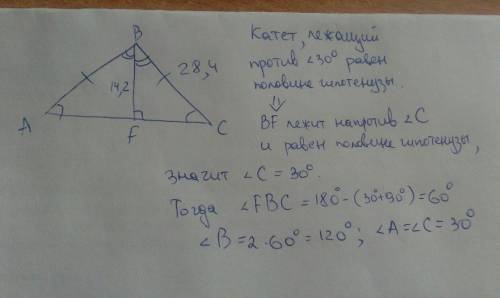 B
Катет, лежащий
28,4
против ∠30° равен
14,2
половине гипотенузы.
⇓
A
F
C
BF лежит напротив ∠C
и равен половине гипотенузы,
значит ∠C = 30°.
Тогда ∠FBC = 180° - (30°+90°) = 60°
∠B = 2·60° = 120°; ∠A = ∠C = 30°